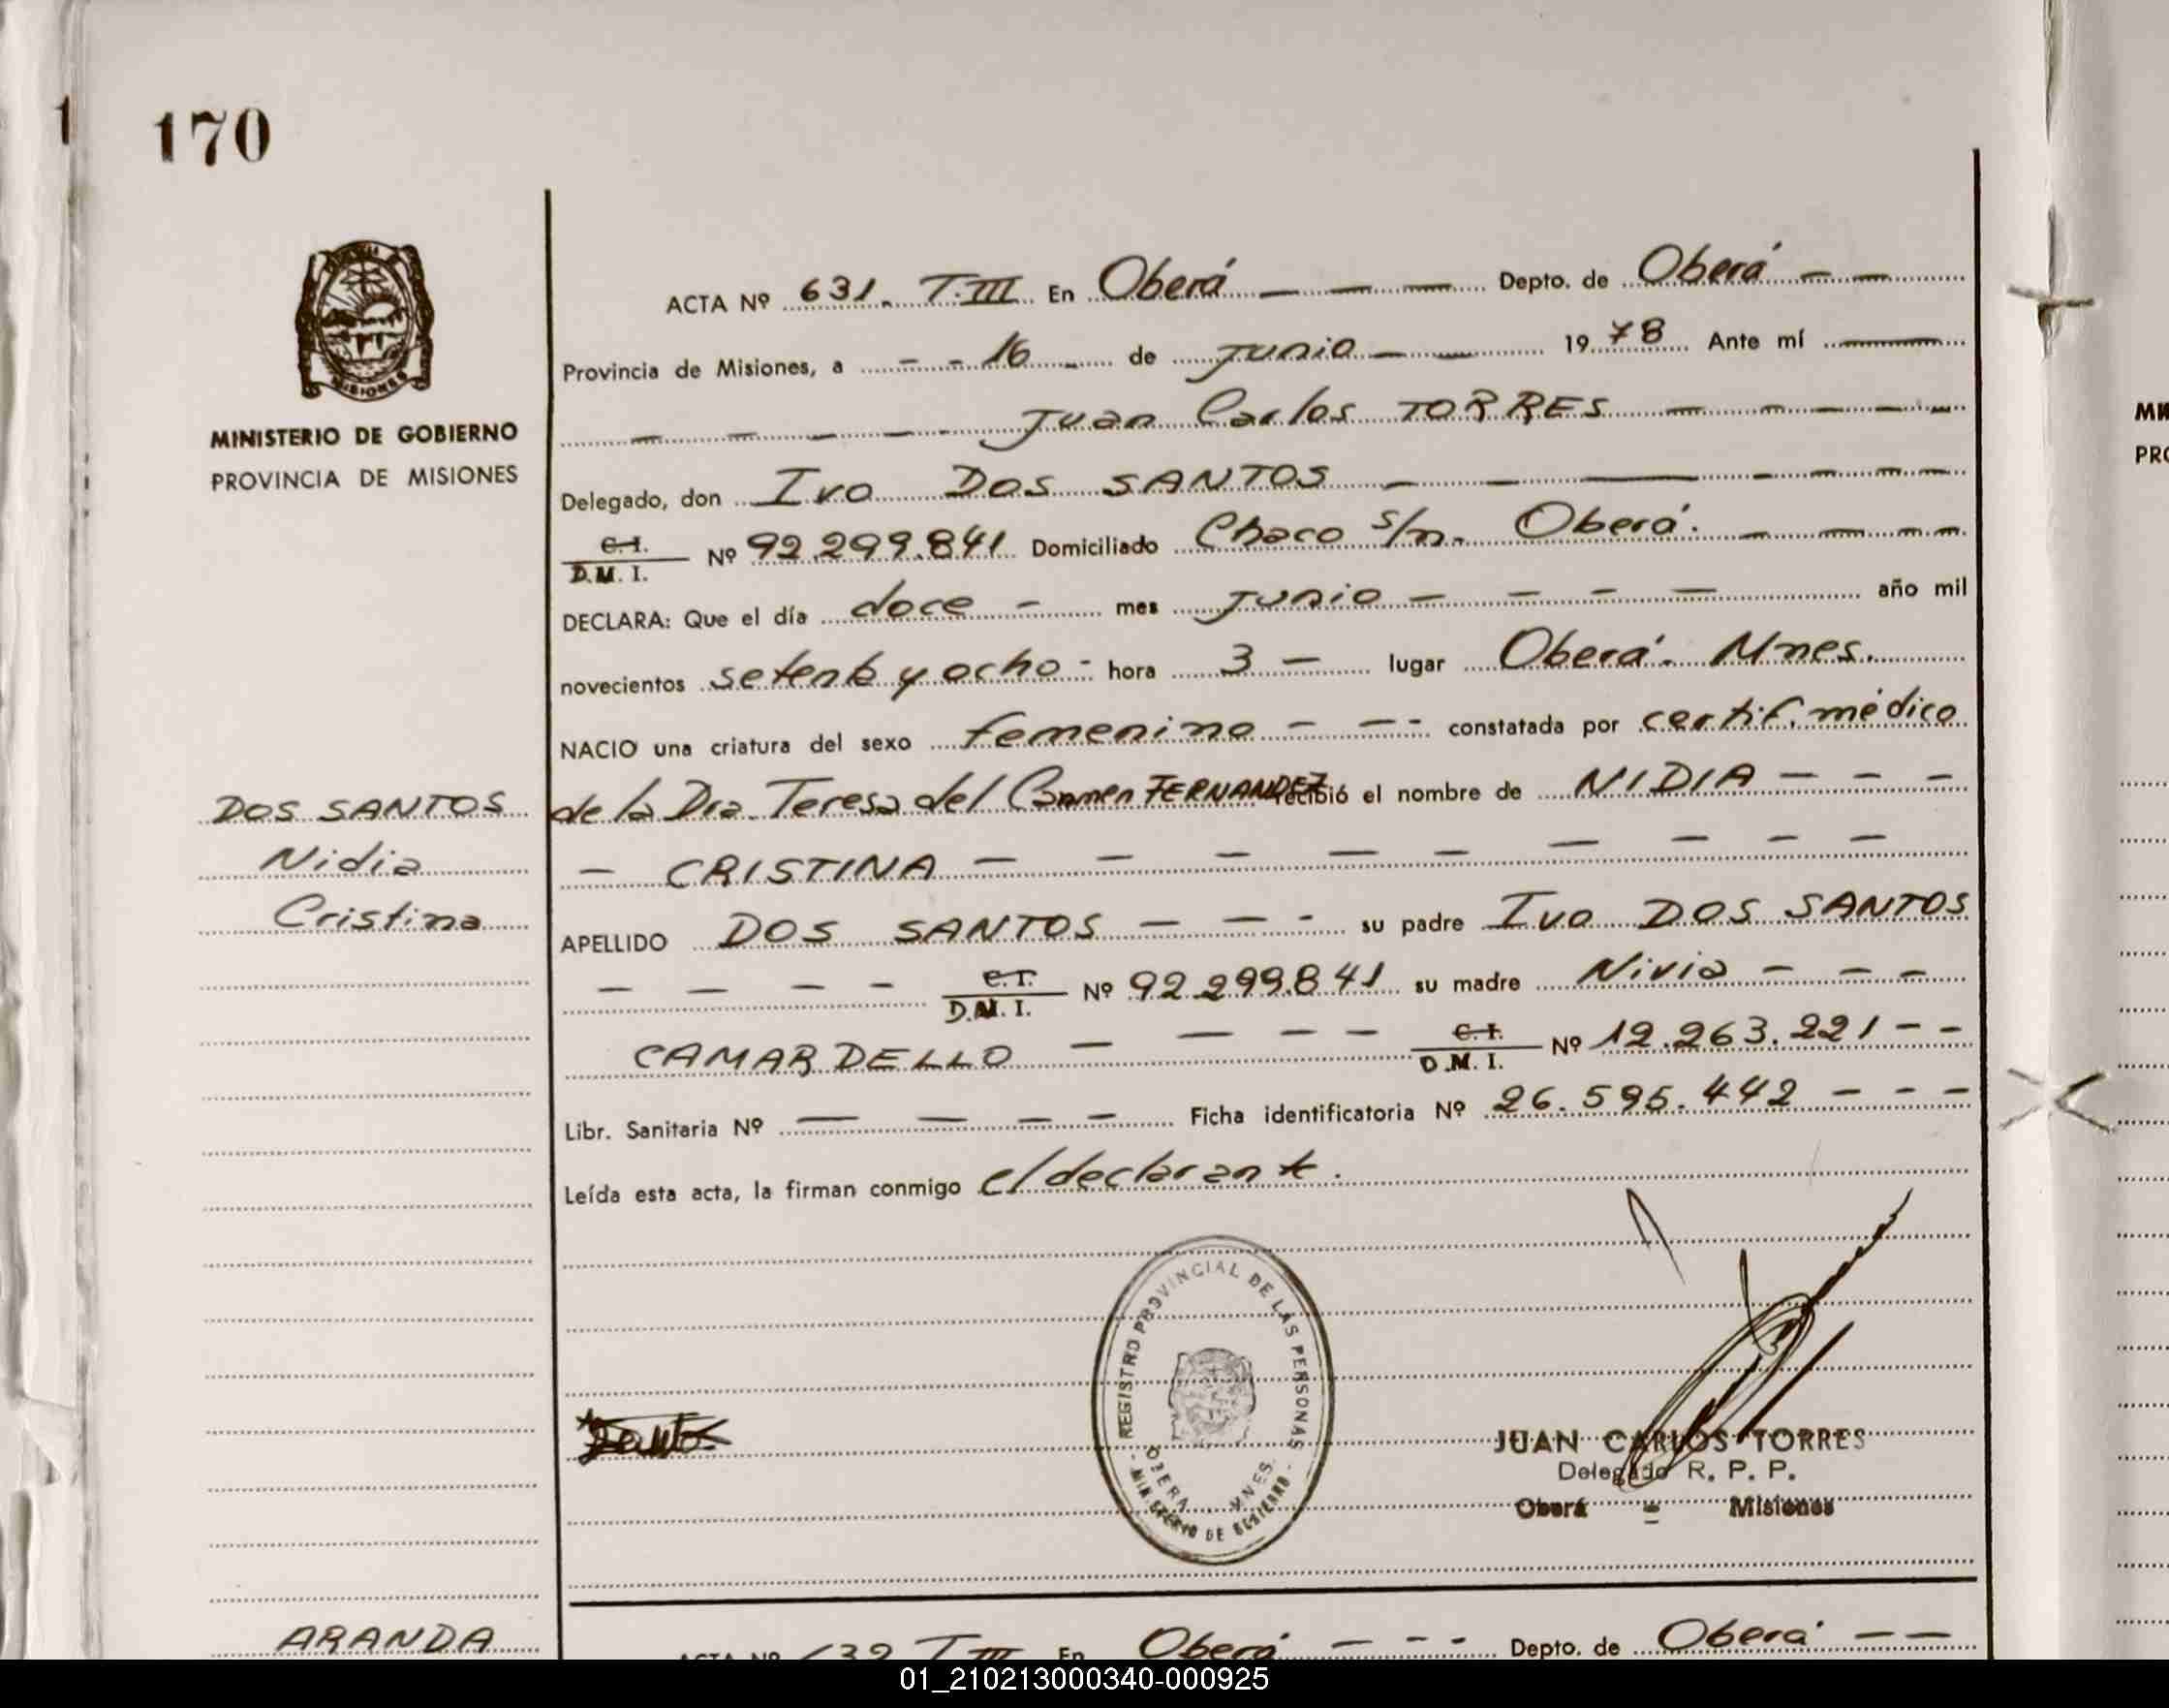 170
MINISTERIO DE GOBIERNO
PROVINCIA DE MISIONES
ACTA Nº 631. T.III En Oberá Depto. de Oberá
Provincia de Misiones, a 16 de Junio 1978 Ante mí
Juan Carlos TORRES
Delegado, don Ivo DOS SANTOS
C.I. D.M.I. Nº 92.299.841 Domiciliado Chaco s/n. Oberá.
DECLARA: Que el día doce mes Junio año mil
novecientos setenta y ocho - hora 3 lugar Oberá. Mnes.
NACIO una criatura del sexo femenino constatada por certif. médico
de la Dra. Teresa del Carmen FERNANDEZ recibió el nombre de NIDIA
CRISTINA
DOS SANTOS
Nidia
Cristina
APELLIDO DOS SANTOS su padre Ivo DOS SANTOS
C.I. D.M.I. Nº 92.299.841 su madre Nivia
CAMARDELLO C.I. D.M.I. Nº 12.263.221
Libr. Sanitaria Nº Ficha identificatoria Nº 26.595.442
Leída esta acta, la firman conmigo el declarante.
REGISTRO PROVINCIAL DE LAS PERSONAS
OBERA MNES.
MINISTERIO DE GOBIERNO
JUAN CARLOS TORRES
Delegado R. P. P.
Oberá - Misiones
ARANDA
ACTA Nº 632 T III En Oberá Depto. de Oberá
01_210213000340-000925